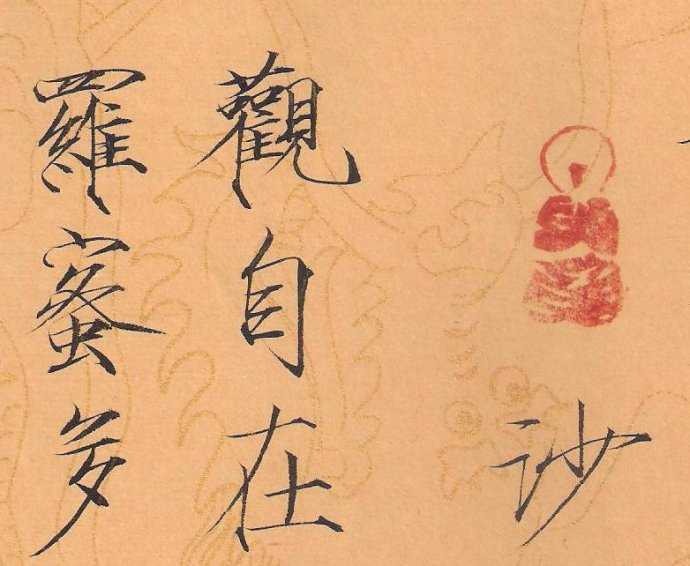 沙
觀自在
羅蜜多